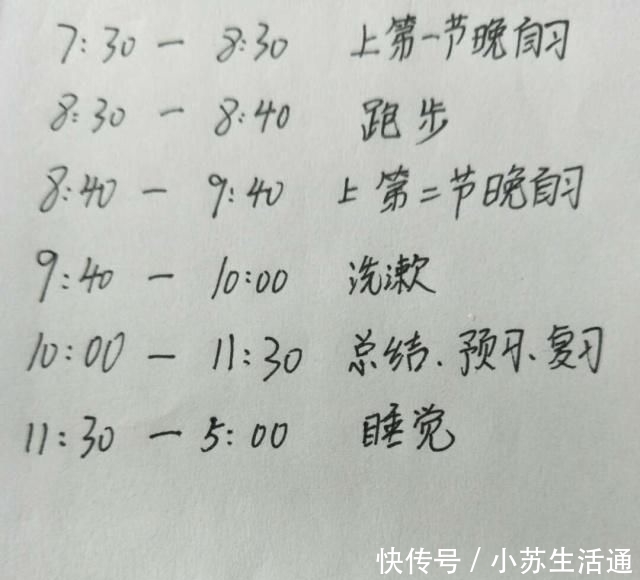 7:30 — 8:30 上第一节晚自习
8:30 — 8:40 跑步
8:40 — 9:40 上第二节晚自习
9:40 — 10:00 洗漱
10:00 — 11:30 总结、预习、复习
11:30 — 5:00 睡觉
快传号 / 小苏生活通